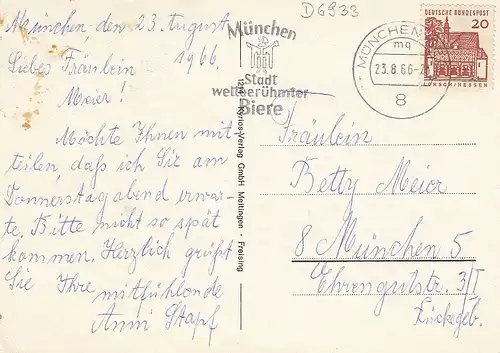 München den 23. August
1966.
Liebes Fräulein
Meier!
Möchte Ihnen mit-
teilen, daß ich Sie am
Donnerstag abend erwar-
te. Bitte nicht so spät
kommen. Herzlich grüßt
Sie Ihre
mitfühlende
Anni Stapf
Korios-Verlag GmbH Meitingen · Freising
D6933
München
Stadt
weltberühmter
Biere
MÜNCHEN
mq
23.8.66-2
8
DEUTSCHE BUNDESPOST
20
LORSCH/HESSEN
Fräulein
Betty Meier
8 München 5
Ehrengutstr. 3/I
Rückgeb.